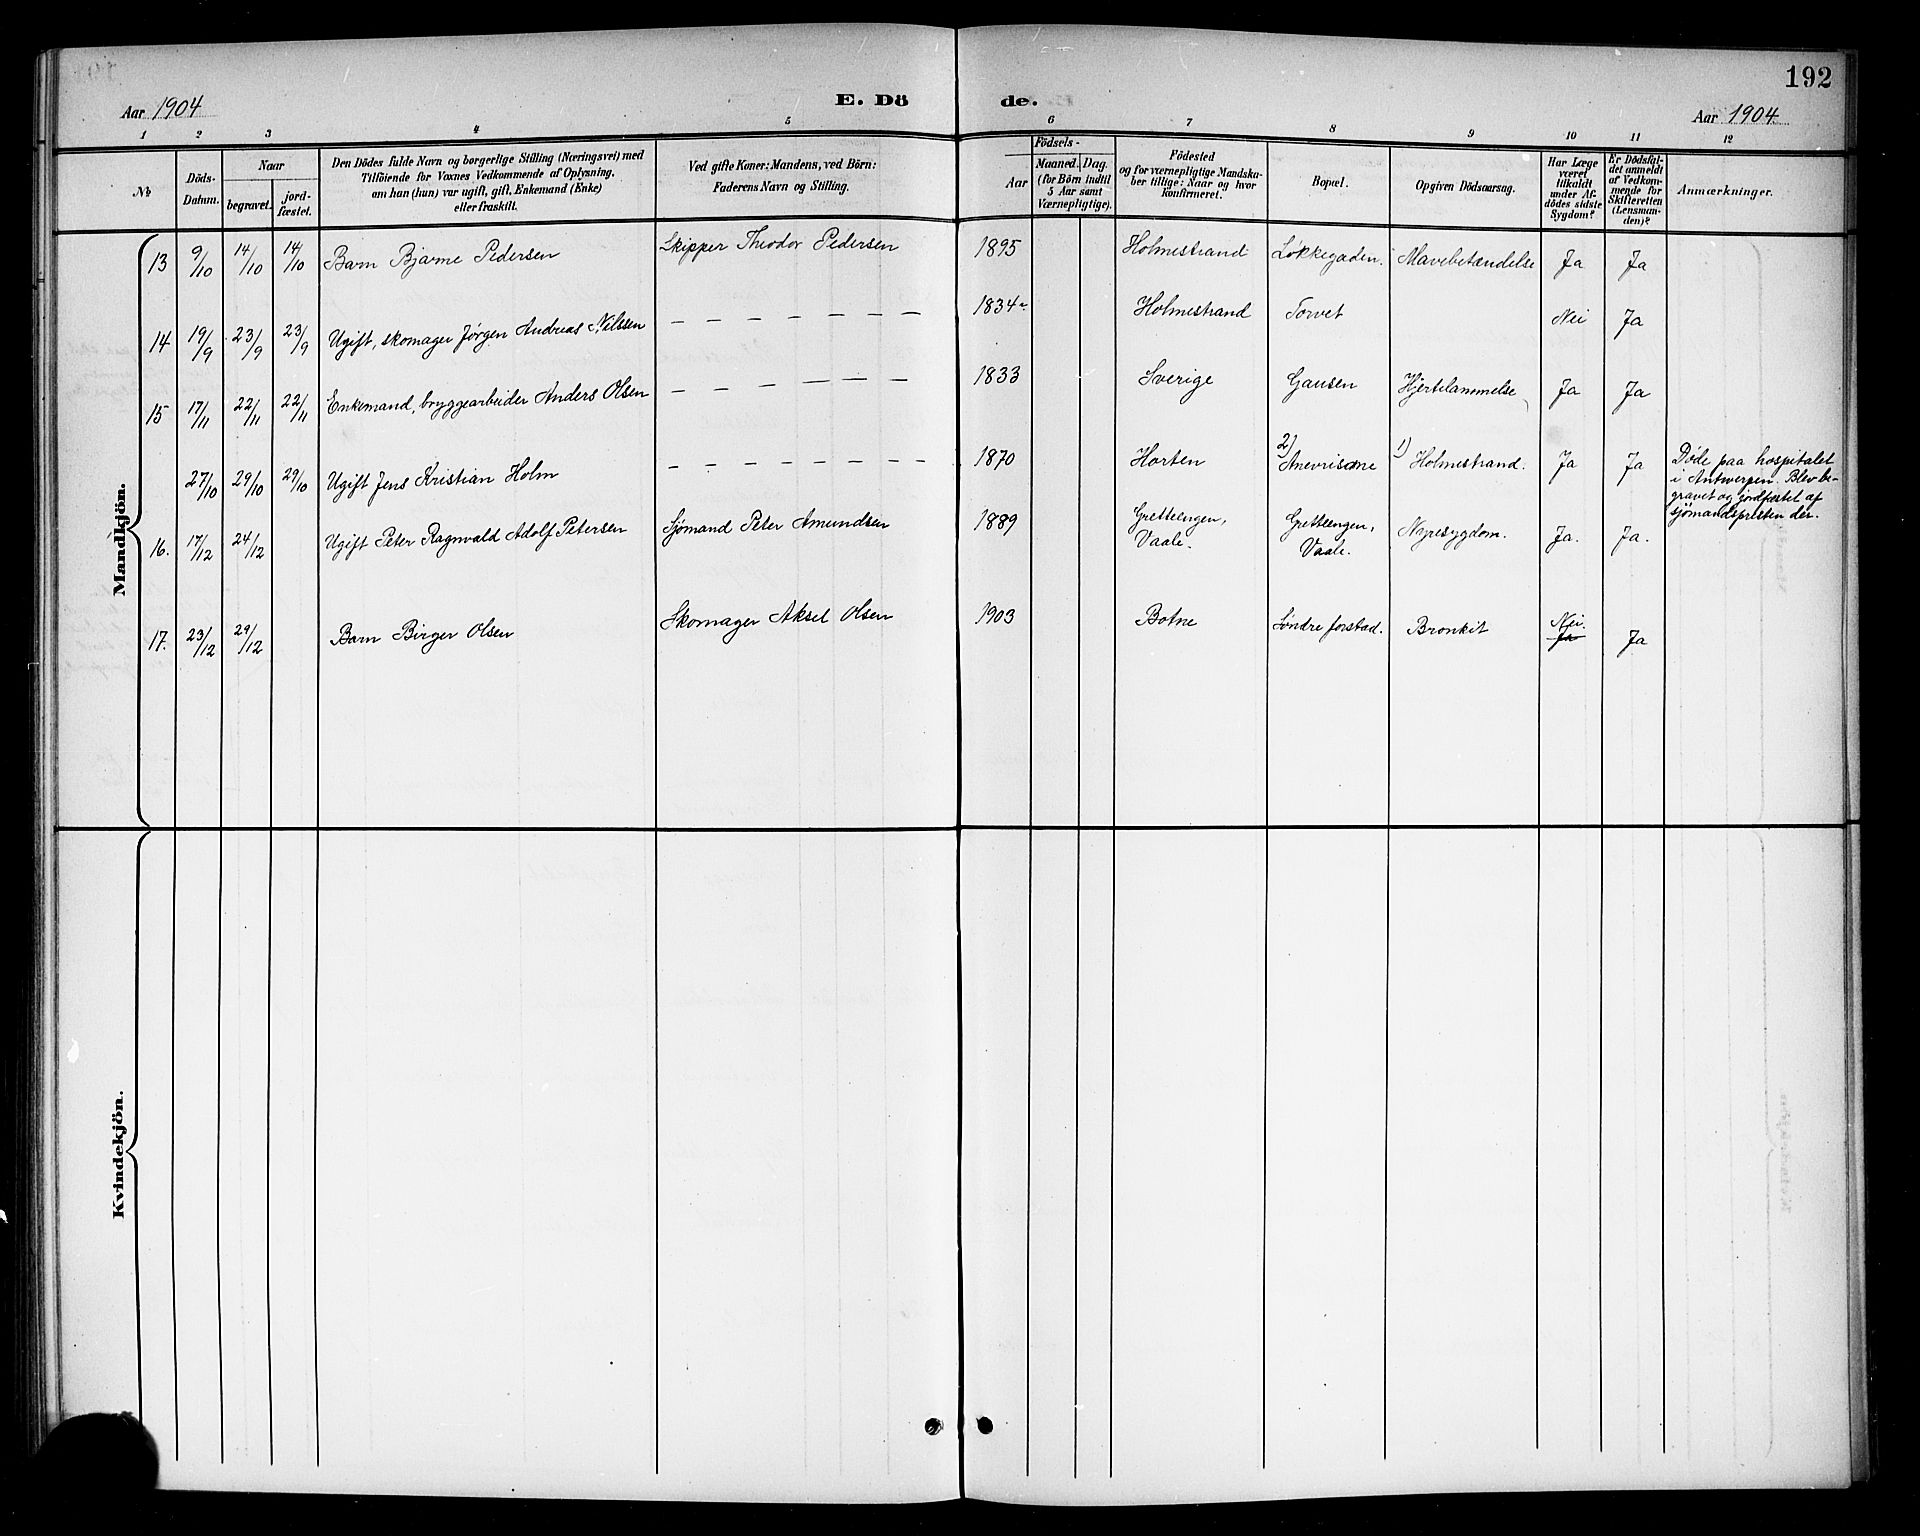 192
Aar 1904 E. Dö de. Aar 1904
1 2 3 4 5 6 7 8 9 10 11 12
№
Döds-
Datum.
Naar
begravet.
jord-
fæstet.
Den Dödes fulde Navn og borgerlige Stilling (Næringsvei) med
Tilföiende for Voxnes Vedkommende af Oplysning.
om han (hun) var ugift, gift, Enkemand (Enke)
eller fraskilt.
Ved gifte Koner: Mandens, ved Börn:
Faderens Navn og Stilling.
Födsels-
Aar
Maaned. Dag.
(for Börn indtil
5 Aar samt
Værnepligtige).
Födested
og for værnepligtige Mandska-
ber tillige: Naar og hvor
konfirmeret.
Bopæl.
Opgiven Dödsaarsag.
Har Læge
været
tilkaldt
under Af-
dödes sidste
Sygdom?
Er Dödsfal-
det anmeldt
af Vedkom-
mende for
Skifteretten
(Lensman-
den)?
Anmærkninger.
Mandkjön.
13 9/10 14/10 14/10 Barn Bjarne Pedersen Skipper Theodor Pedersen 1895 Holmestrand Løkkegaden. Mavebetændelse Ja Ja
14 19/9 23/9 23/9 Ugift, skomager Jørgen Andreas Nilssen — — — — — — — 1834 Holmestrand Torvet Nei Ja
15 17/11 22/11 22/11 Enkemand, bryggearbeider Anders Olsen — — — — — — 1833 Sverige Gausen Hjertelammelse Ja Ja
27/10 29/10 29/10 Ugift Jens Kristian Holm — — — — — — — 1870 Horten 2) Anevrisme 1) Holmestrand. Ja Ja
Døde paa hospitalet
i Antwerpen. Blev be-
gravet og jordfæstet af
sjømandspresten der.
16. 17/12 24/12 Ugift Peter Ragnvald Adolf Petersen Sjømand Peter Amundsen 1889 Gretteengen,
Vaale.
Gretteengen,
Vaale.
Nyresygdom. Ja. Ja.
17. 23/12 29/12 Barn Birger Olsen Skomager Aksel Olsen 1903 Botne Søndre forstad. Bronkit Nei.
Ja
Ja
Kvindekjön.